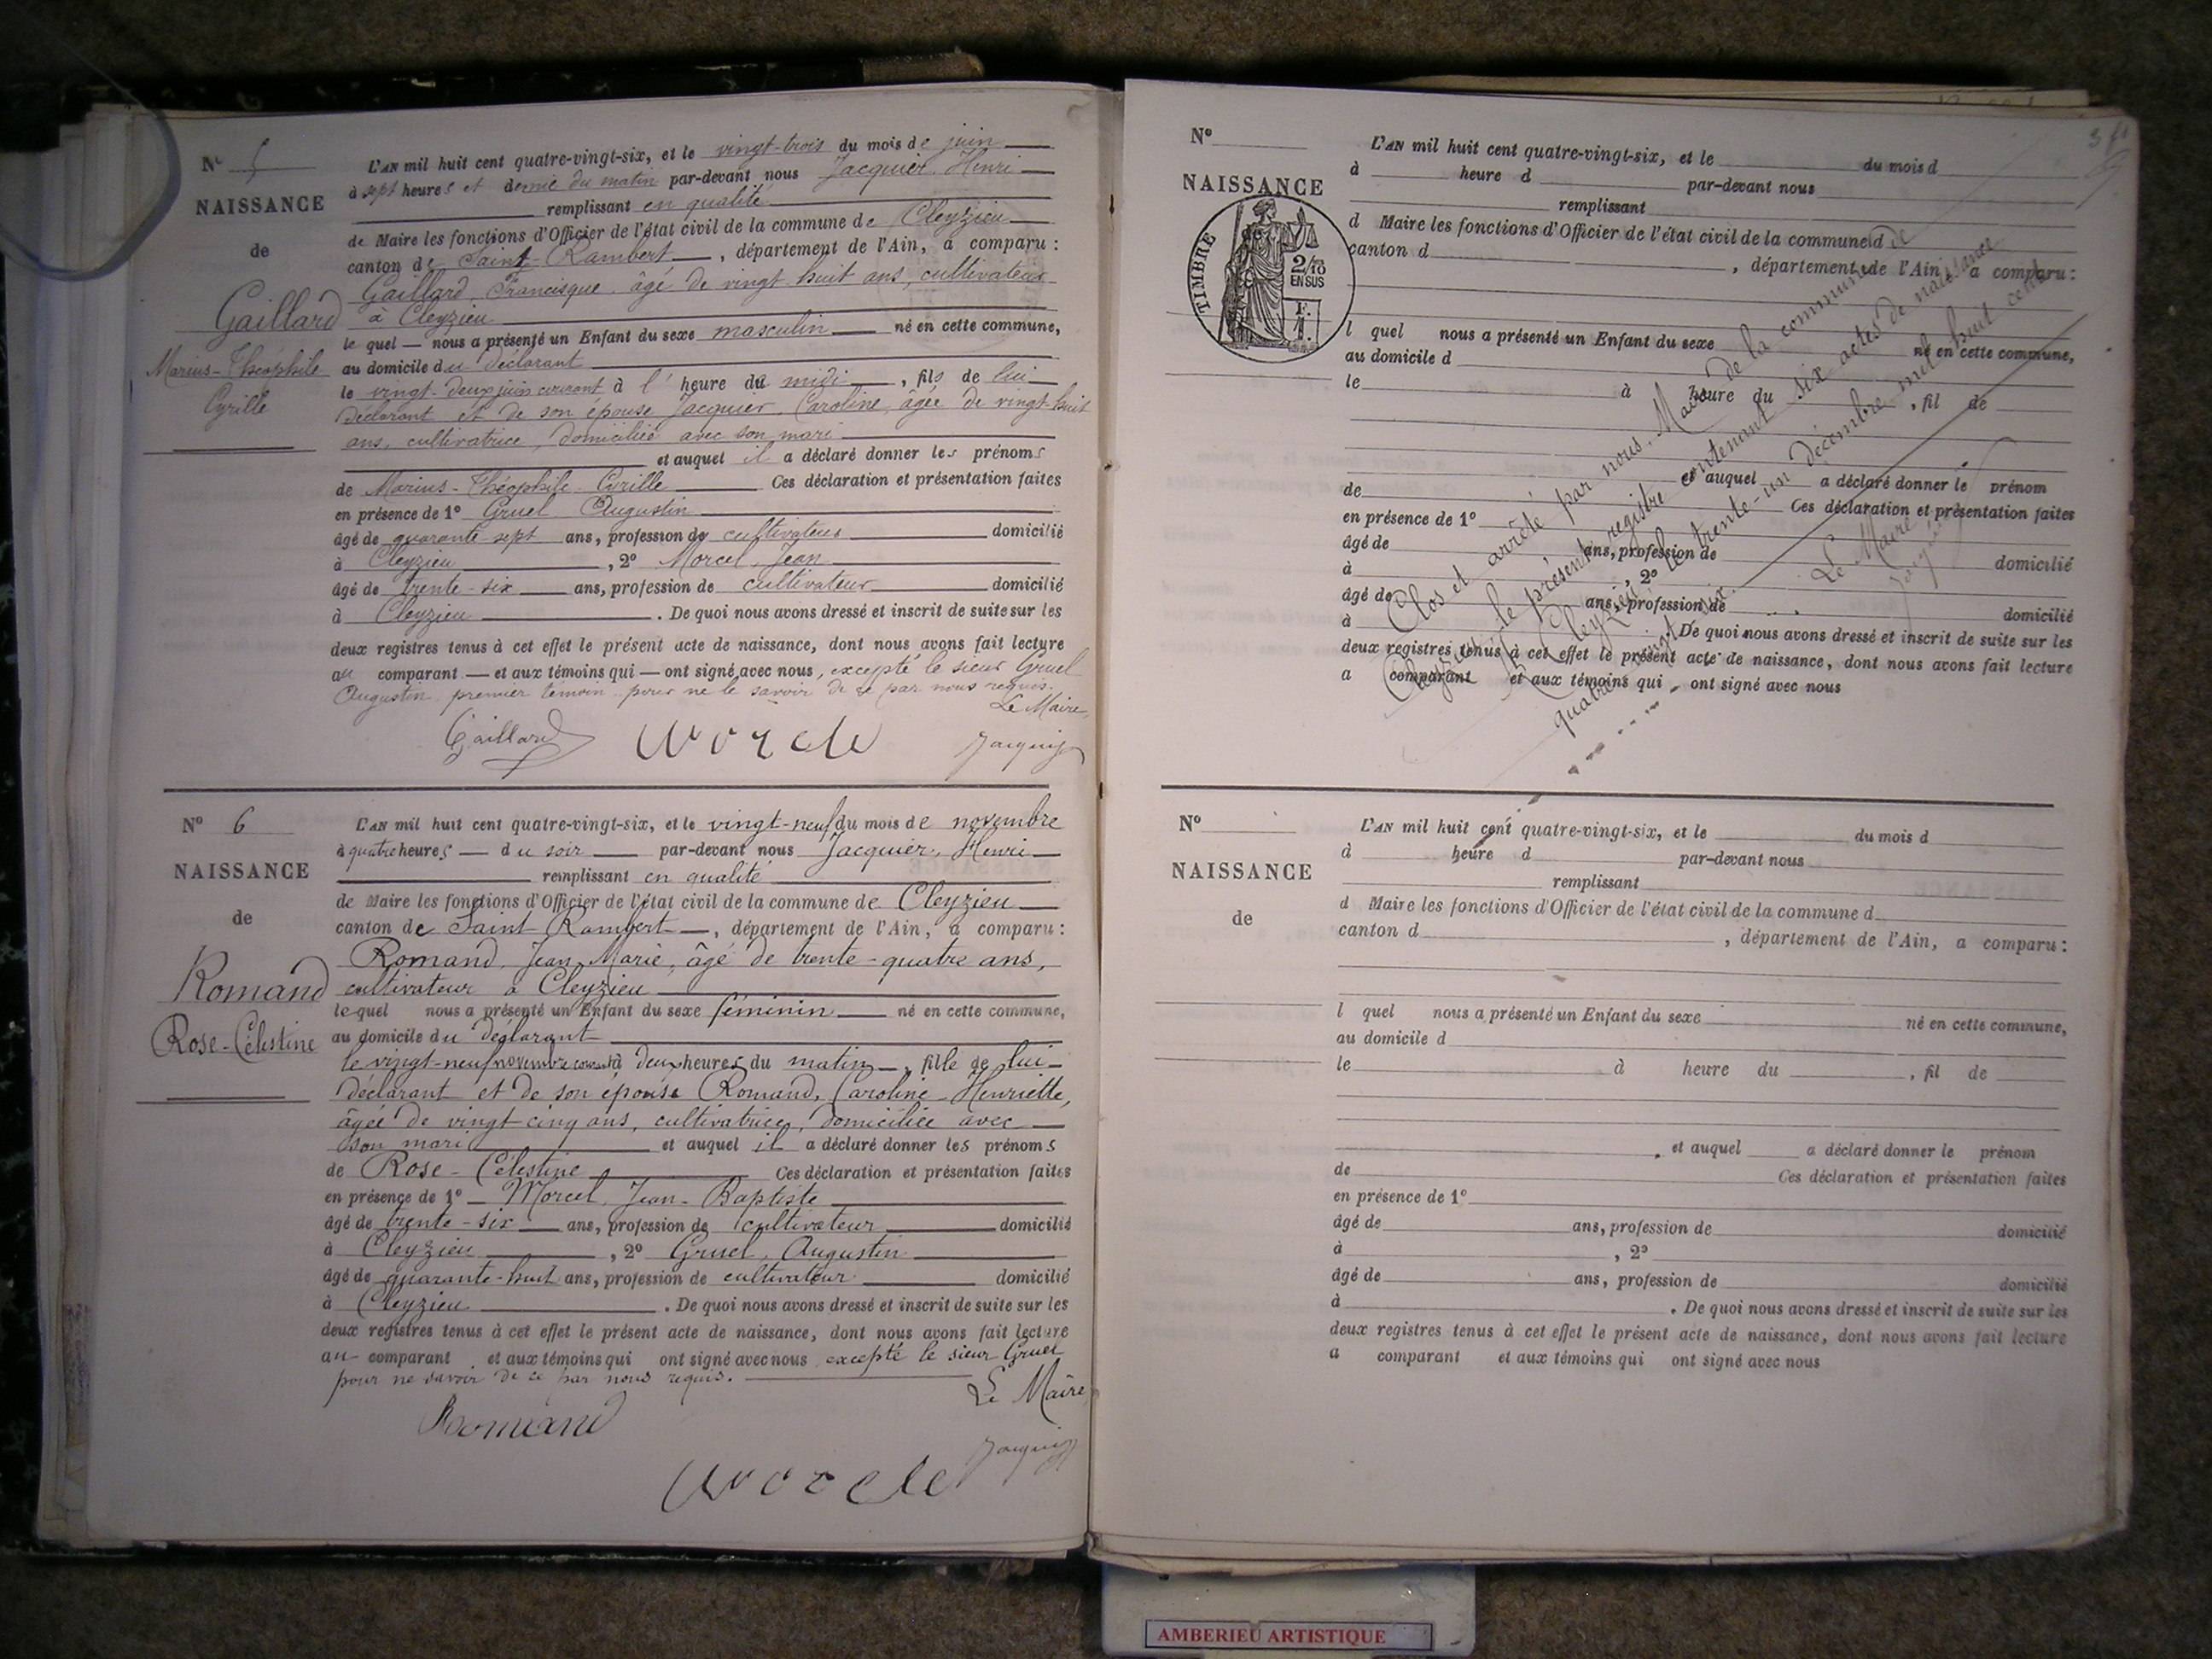 N° 5
NAISSANCE
de
Gaillard
Marius-Théophile
Cyrille
L'AN mil huit cent quatre-vingt-six, et le vingt-trois du mois de juin
à sept heures et demie du matin par-devant nous Jacquier, Henri
remplissant en qualité
de Maire les fonctions d'Officier de l'état civil de la commune de Cleyzieu
canton de Saint-Rambert, département de l'Ain, a comparu :
Gaillard, Francisque, âgé de vingt huit ans, cultivateur
à Cleyzieu
le quel nous a présenté un Enfant du sexe masculin né en cette commune,
au domicile du déclarant
le vingt-deux juin courant à l' heure du midi, fils de lui
déclarant et de son épouse Jacquier, Caroline, âgée de vingt-huit
ans, cultivatrice, domiciliée avec son mari
et auquel il a déclaré donner les prénoms
de Marius-Théophile-Cyrille Ces déclaration et présentation faites
en présence de 1° Gruel, Augustin
âgé de quarante-sept ans, profession de cultivateur domicilié
à Cleyzieu, 2° Morcel, Jean
âgé de trente-six ans, profession de cultivateur domicilié
à Cleyzieu. De quoi nous avons dressé et inscrit de suite sur les
deux registres tenus à cet effet le présent acte de naissance, dont nous avons fait lecture
au comparant et aux témoins qui ont signé avec nous, excepté le sieur Gruel
Augustin premier témoin pour ne le savoir de ce par nous requis.
Le Maire,
Gaillard Morcel Jacquier
N° 6
NAISSANCE
de
Romand
Rose-Célestine
L'AN mil huit cent quatre-vingt-six, et le vingt-neuf du mois de novembre
à quatre heures du soir par-devant nous Jacquier, Henri
remplissant en qualité
de Maire les fonctions d'Officier de l'état civil de la commune de Cleyzieu
canton de Saint-Rambert, département de l'Ain, a comparu :
Romand, Jean-Marie, âgé de trente-quatre ans,
cultivateur à Cleyzieu
le quel nous a présenté un Enfant du sexe féminin né en cette commune,
au domicile du déclarant
le vingt-neuf novembre courant à deux heures du matin, fille de lui
déclarant et de son épouse Romand, Caroline-Henriette,
âgée de vingt-cinq ans, cultivatrice, domiciliée avec
son mari et auquel il a déclaré donner les prénoms
de Rose-Célestine Ces déclaration et présentation faites
en présence de 1° Morcel, Jean-Baptiste
âgé de trente-six ans, profession de cultivateur domicilié
à Cleyzieu, 2° Gruel, Augustin
âgé de quarante-huit ans, profession de cultivateur domicilié
à Cleyzieu. De quoi nous avons dressé et inscrit de suite sur les
deux registres tenus à cet effet le présent acte de naissance, dont nous avons fait lecture
au comparant et aux témoins qui ont signé avec nous excepté le sieur Gruel
pour ne savoir de ce par nous requis.
Le Maire,
Romand
Morcel Jacquier
N°
NAISSANCE
TIMBRE
2/10
EN SUS
F.
1.
L'AN mil huit cent quatre-vingt-six, et le du mois d
à heure d par-devant nous
remplissant
d Maire les fonctions d'Officier de l'état civil de la commune d
canton d , département de l'Ain, a comparu :
l quel nous a présenté un Enfant du sexe né en cette commune,
au domicile d
le à heure du , fil de
et auquel a déclaré donner le prénom
de Ces déclaration et présentation faites
en présence de 1°
âgé de ans, profession de domicilié
à , 2°
âgé de ans, profession de domicilié
à . De quoi nous avons dressé et inscrit de suite sur les
deux registres tenus à cet effet le présent acte de naissance, dont nous avons fait lecture
a comparant et aux témoins qui ont signé avec nous
Clos et arrêté par nous, Maire de la commune de
Cleyzieu le présent registre contenant six actes de naissance
A Cleyzieu le trente-un décembre mil huit cent
quatre vingt six.
Le Maire
Jacquier
N°
NAISSANCE
de
L'AN mil huit cent quatre-vingt-six, et le du mois d
à heure d par-devant nous
remplissant
d Maire les fonctions d'Officier de l'état civil de la commune d
canton d , département de l'Ain, a comparu :
l quel nous a présenté un Enfant du sexe né en cette commune,
au domicile d
le à heure du , fil de
et auquel a déclaré donner le prénom
de Ces déclaration et présentation faites
en présence de 1°
âgé de ans, profession de domicilié
à , 2°
âgé de ans, profession de domicilié
à . De quoi nous avons dressé et inscrit de suite sur les
deux registres tenus à cet effet le présent acte de naissance, dont nous avons fait lecture
a comparant et aux témoins qui ont signé avec nous
AMBERIEU ARTISTIQUE